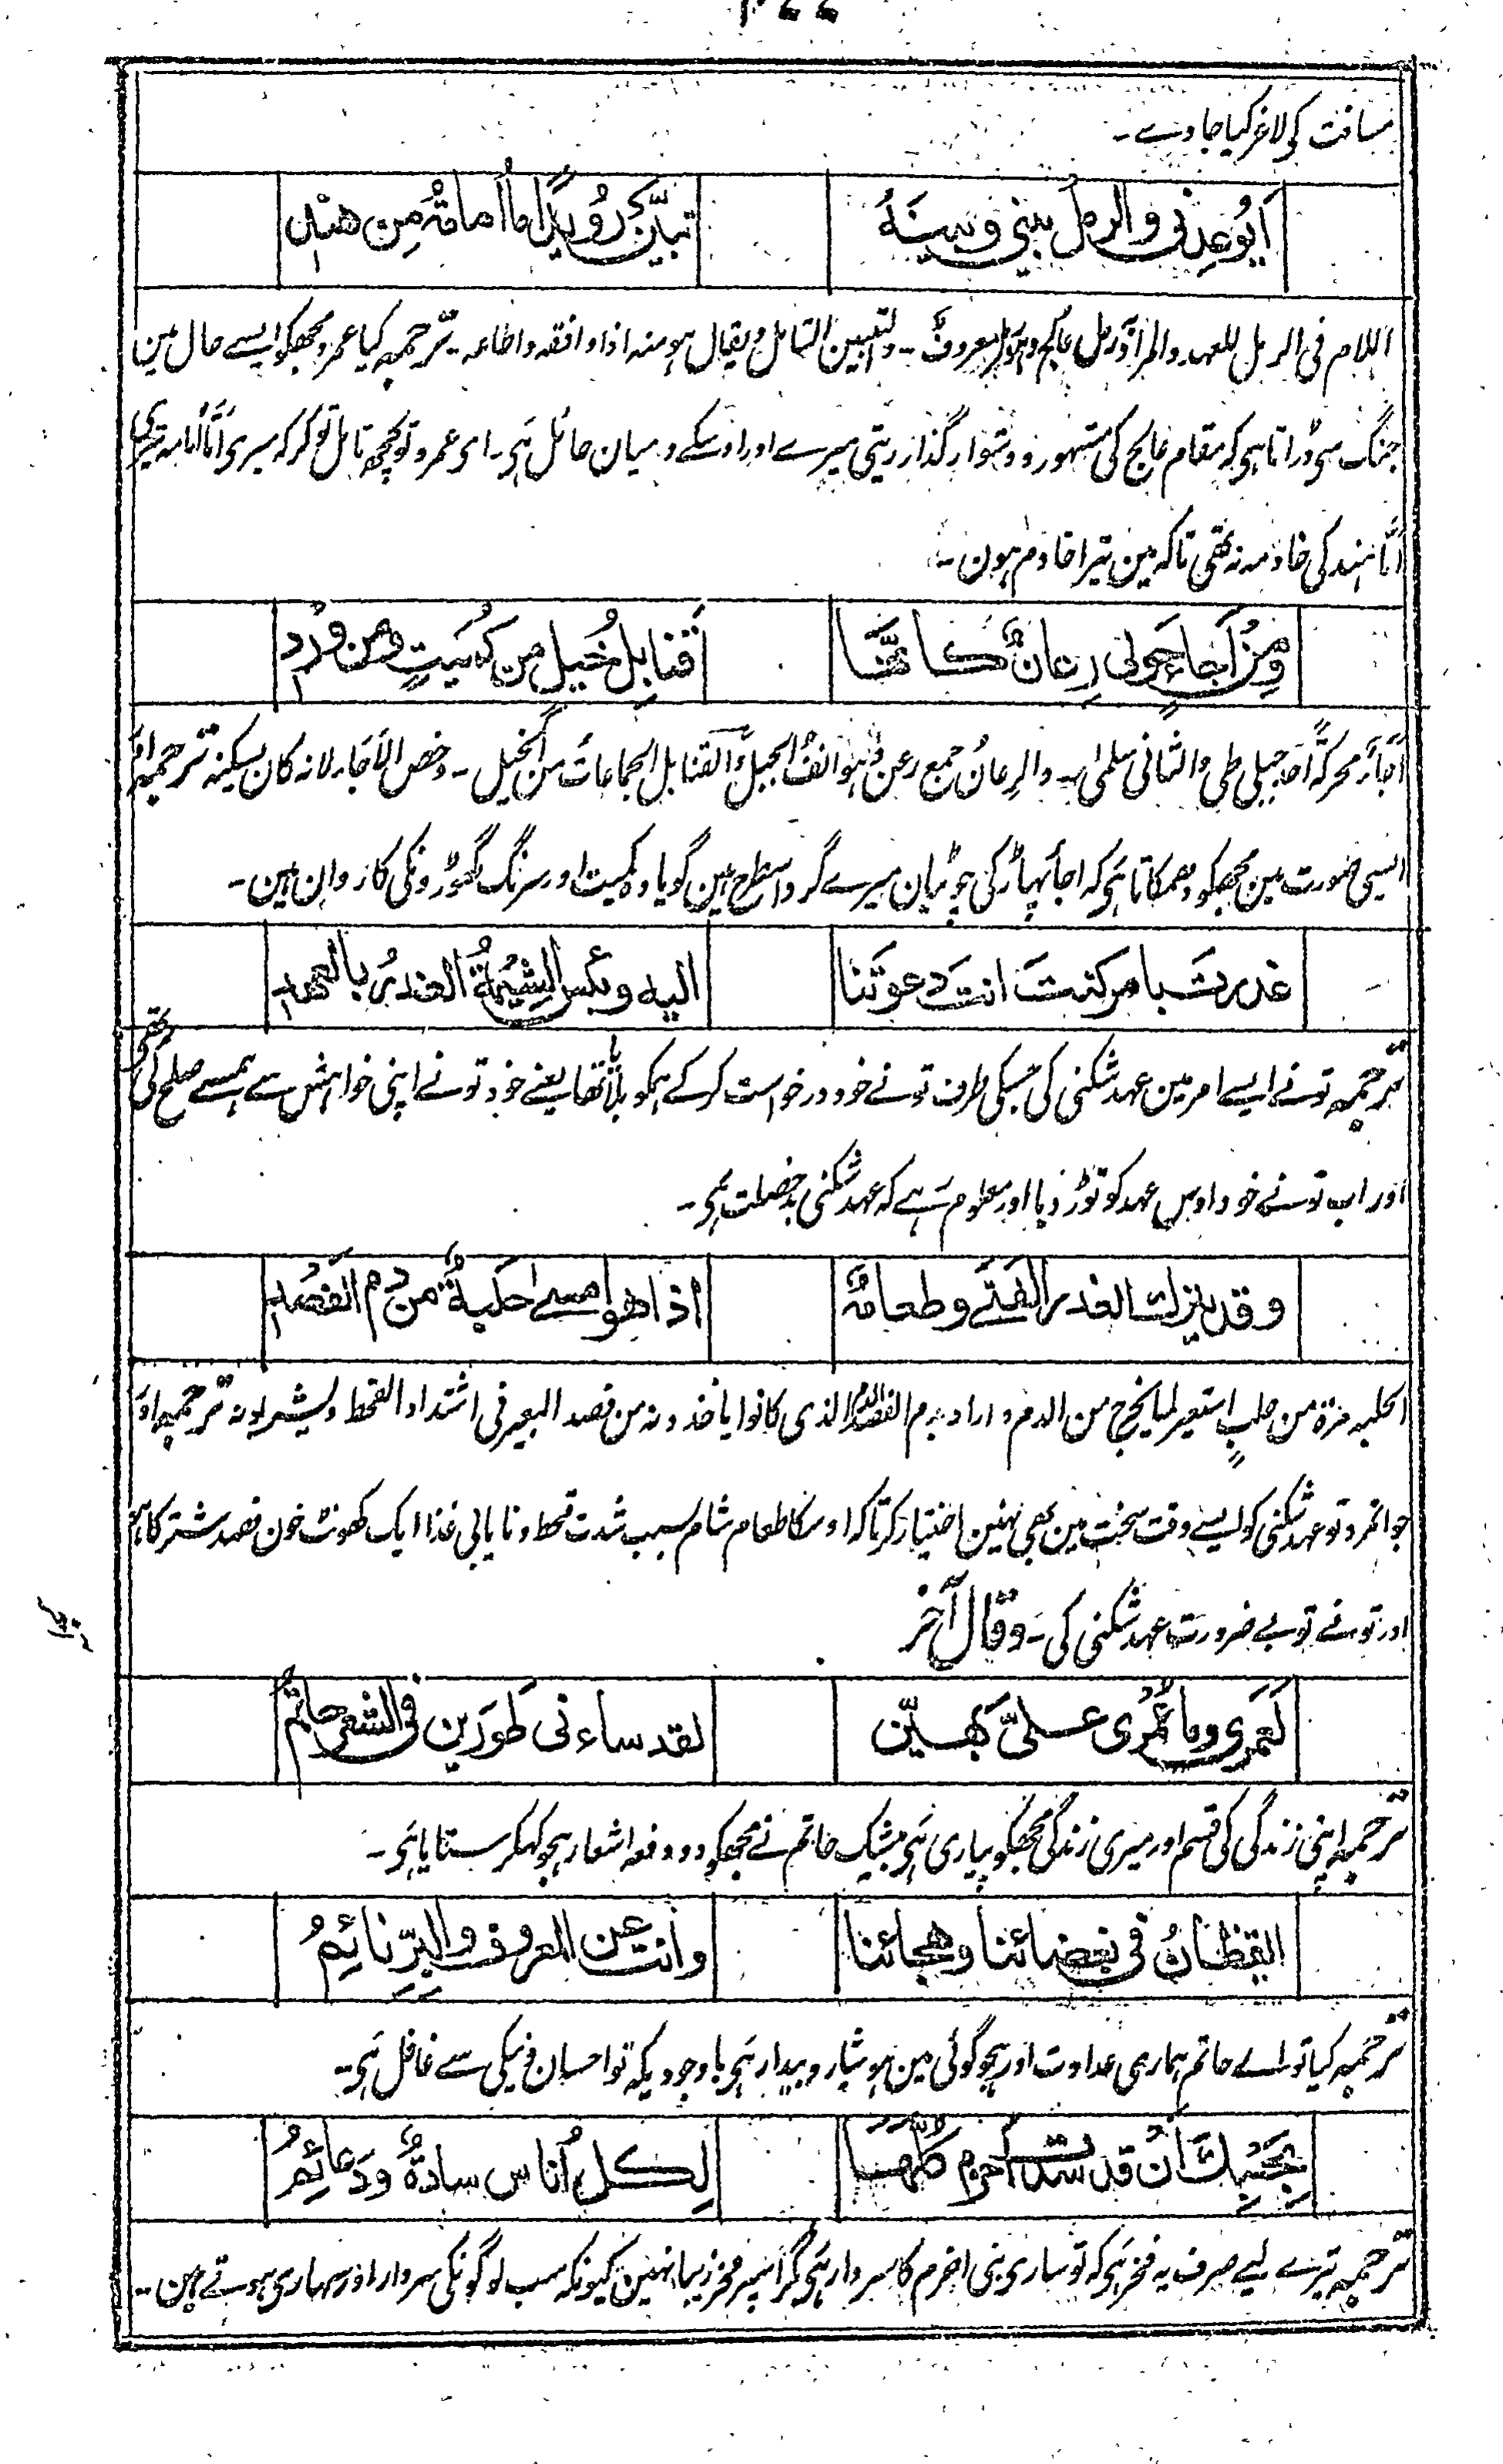 مسافت کی لاغر کیا جاوے ۔
اَیُوعِدُنی والرملُ بینی وبینَہٗ تَبَیَّنْ رُوَیْدًا ما اُمامۃُ مِن ھندِ
اللام فی الرمل للعہد والمراد رمل عالج وہو رمل معروف ۔ والتبین التامل ویقال ہو منہ اذا وافقہ واطاعہ ۔ ترجمہ کیا عمرو مجھکو ایسے حال مین
جنگ سی ڈراتا ہی کہ مقام عالج کی مشہور و دشوار گذار ریتی میرے اور اوسکے درمیان حائل ہی ۔ ای عمرو تو کچھ تامل تو کر کہ میری انّا امامہ تیری
انّا ہند کی خادمہ نہ تھی تاکہ مین تیرا خادم ہون ۔
ومن اَجَاءٍ حولی رِعانٌ کانّھا قنابلُ خیلٍ من کُمَیتٍ ومن وَرْدِ
اَجَاَ محرکۃً احد جبلی طی والثانی سلمیٰ ۔ والرِعانُ جمع رعن وہو انفُ الجبل والقنابل الجماعات من الخیل ۔ وخص الاجاء لانہ کان یسکنہ ترجمہ اور
ایسی صورت مین مجھکو دھمکاتا ہی کہ اجاء پہاڑ کی چوٹیان میرے گرد اسطرح ہین گویا وہ کمیت اور سرنگ گھوڑونکی کاروان ہین ۔
غدرتَ بامرٍ کنتَ انتَ دعوتَنا الیہ وبئسَ الشِیْمَۃُ الغدرُ بالعھدِ
ترجمہ تونے ایسے امر مین عہد شکنی کی جسکی طرف تونے خود درخواست کرکے ہمکو بلایا تھا یعنے خود تونے اپنی خواہش سے ہمسے صلح کی تھی
اور اب تونے خود اوس عہد کو توڑ دیا اور معلوم رہے کہ عہد شکنی بد خصلت ہی ۔
وقد یترک الغدرَ الفتیٰ وطعامُہٗ اذا ھو امسیٰ حَلْبۃٌ من دمِ الفَصْدِ
الحلبہ مرۃ من حلبٍ استعیر لما یخرج من الدم واراد بدم الفصد الدم الذی کانوا یاخذونہ من فصد البعیر فی اشتداد القحط ویشربونہ ترجمہ اور
جوانمرد تو عہد شکنی کو ایسے وقت سخت مین بھی نہین اختیار کرتا کہ اوسکا طعام شام بسبب شدت قحط و نایابی غذا ایک گھونٹ خون فصد شتر کا ہو
اور تونے تو بے ضرورت عہد شکنی کی ۔ وقال آخر
لَعَمری وما عُمُری علیَّ بِھَیِّن لقد ساءنی طَورَین فی الشعرِ حاتمُ
ترجمہ اپنی زندگی کی قسم اور میری زندگی مجھکو پیاری ہی بیشک حاتم نے مجھکو دو دفعہ اشعار ہجو کہکر ستایا ہی ۔
ایقظانُ فی بغضائنا وھجائنا وانت عن المعروف والبِرِّ نائِمُ
ترجمہ کیا تو اے حاتم ہماری عداوت اور ہجو گوئی مین ہوشیار و بیدار ہی باوجودیکہ تو احسان و نیکی سے غافل ہی ۔
بِحَسْبِکَ اَنْ قد سُدتَ اَخزم کلّھا لِکلِ اُناسٍ سادۃٌ ودعائِمُ
ترجمہ تیرے لیے صرف یہ فخر ہی کہ تو ساری بنی اخزم کا سردار ہی مگر اسپر فخر زیبا نہین کیونکہ سب لوگونکی سردار اور سہاری ہوتے ہین ۔